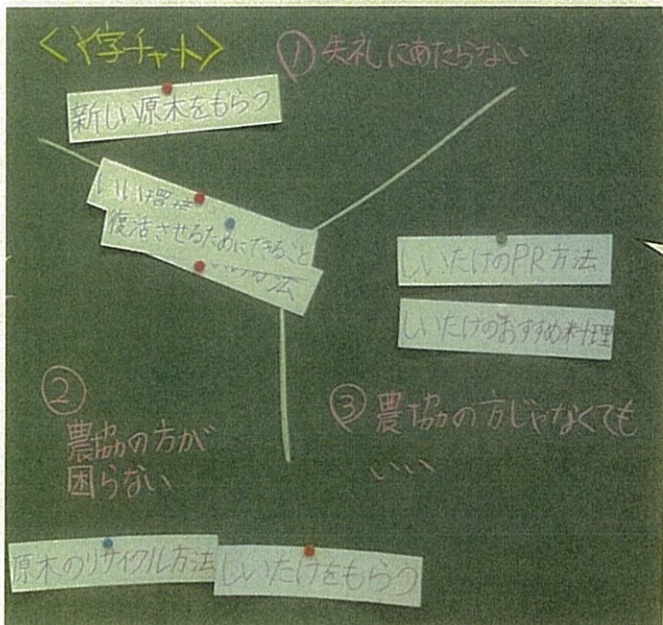 <Y字チャート>
① 失礼にあたらない
新しい原木をもらう
いい環境
復活させるためにできること
方法
しいたけのPR方法
しいたけのおすすめ料理
②
農協の方が
困らない
③ 農協の方じゃなくても
いい
原木のリサイクル方法
しいたけをもらう